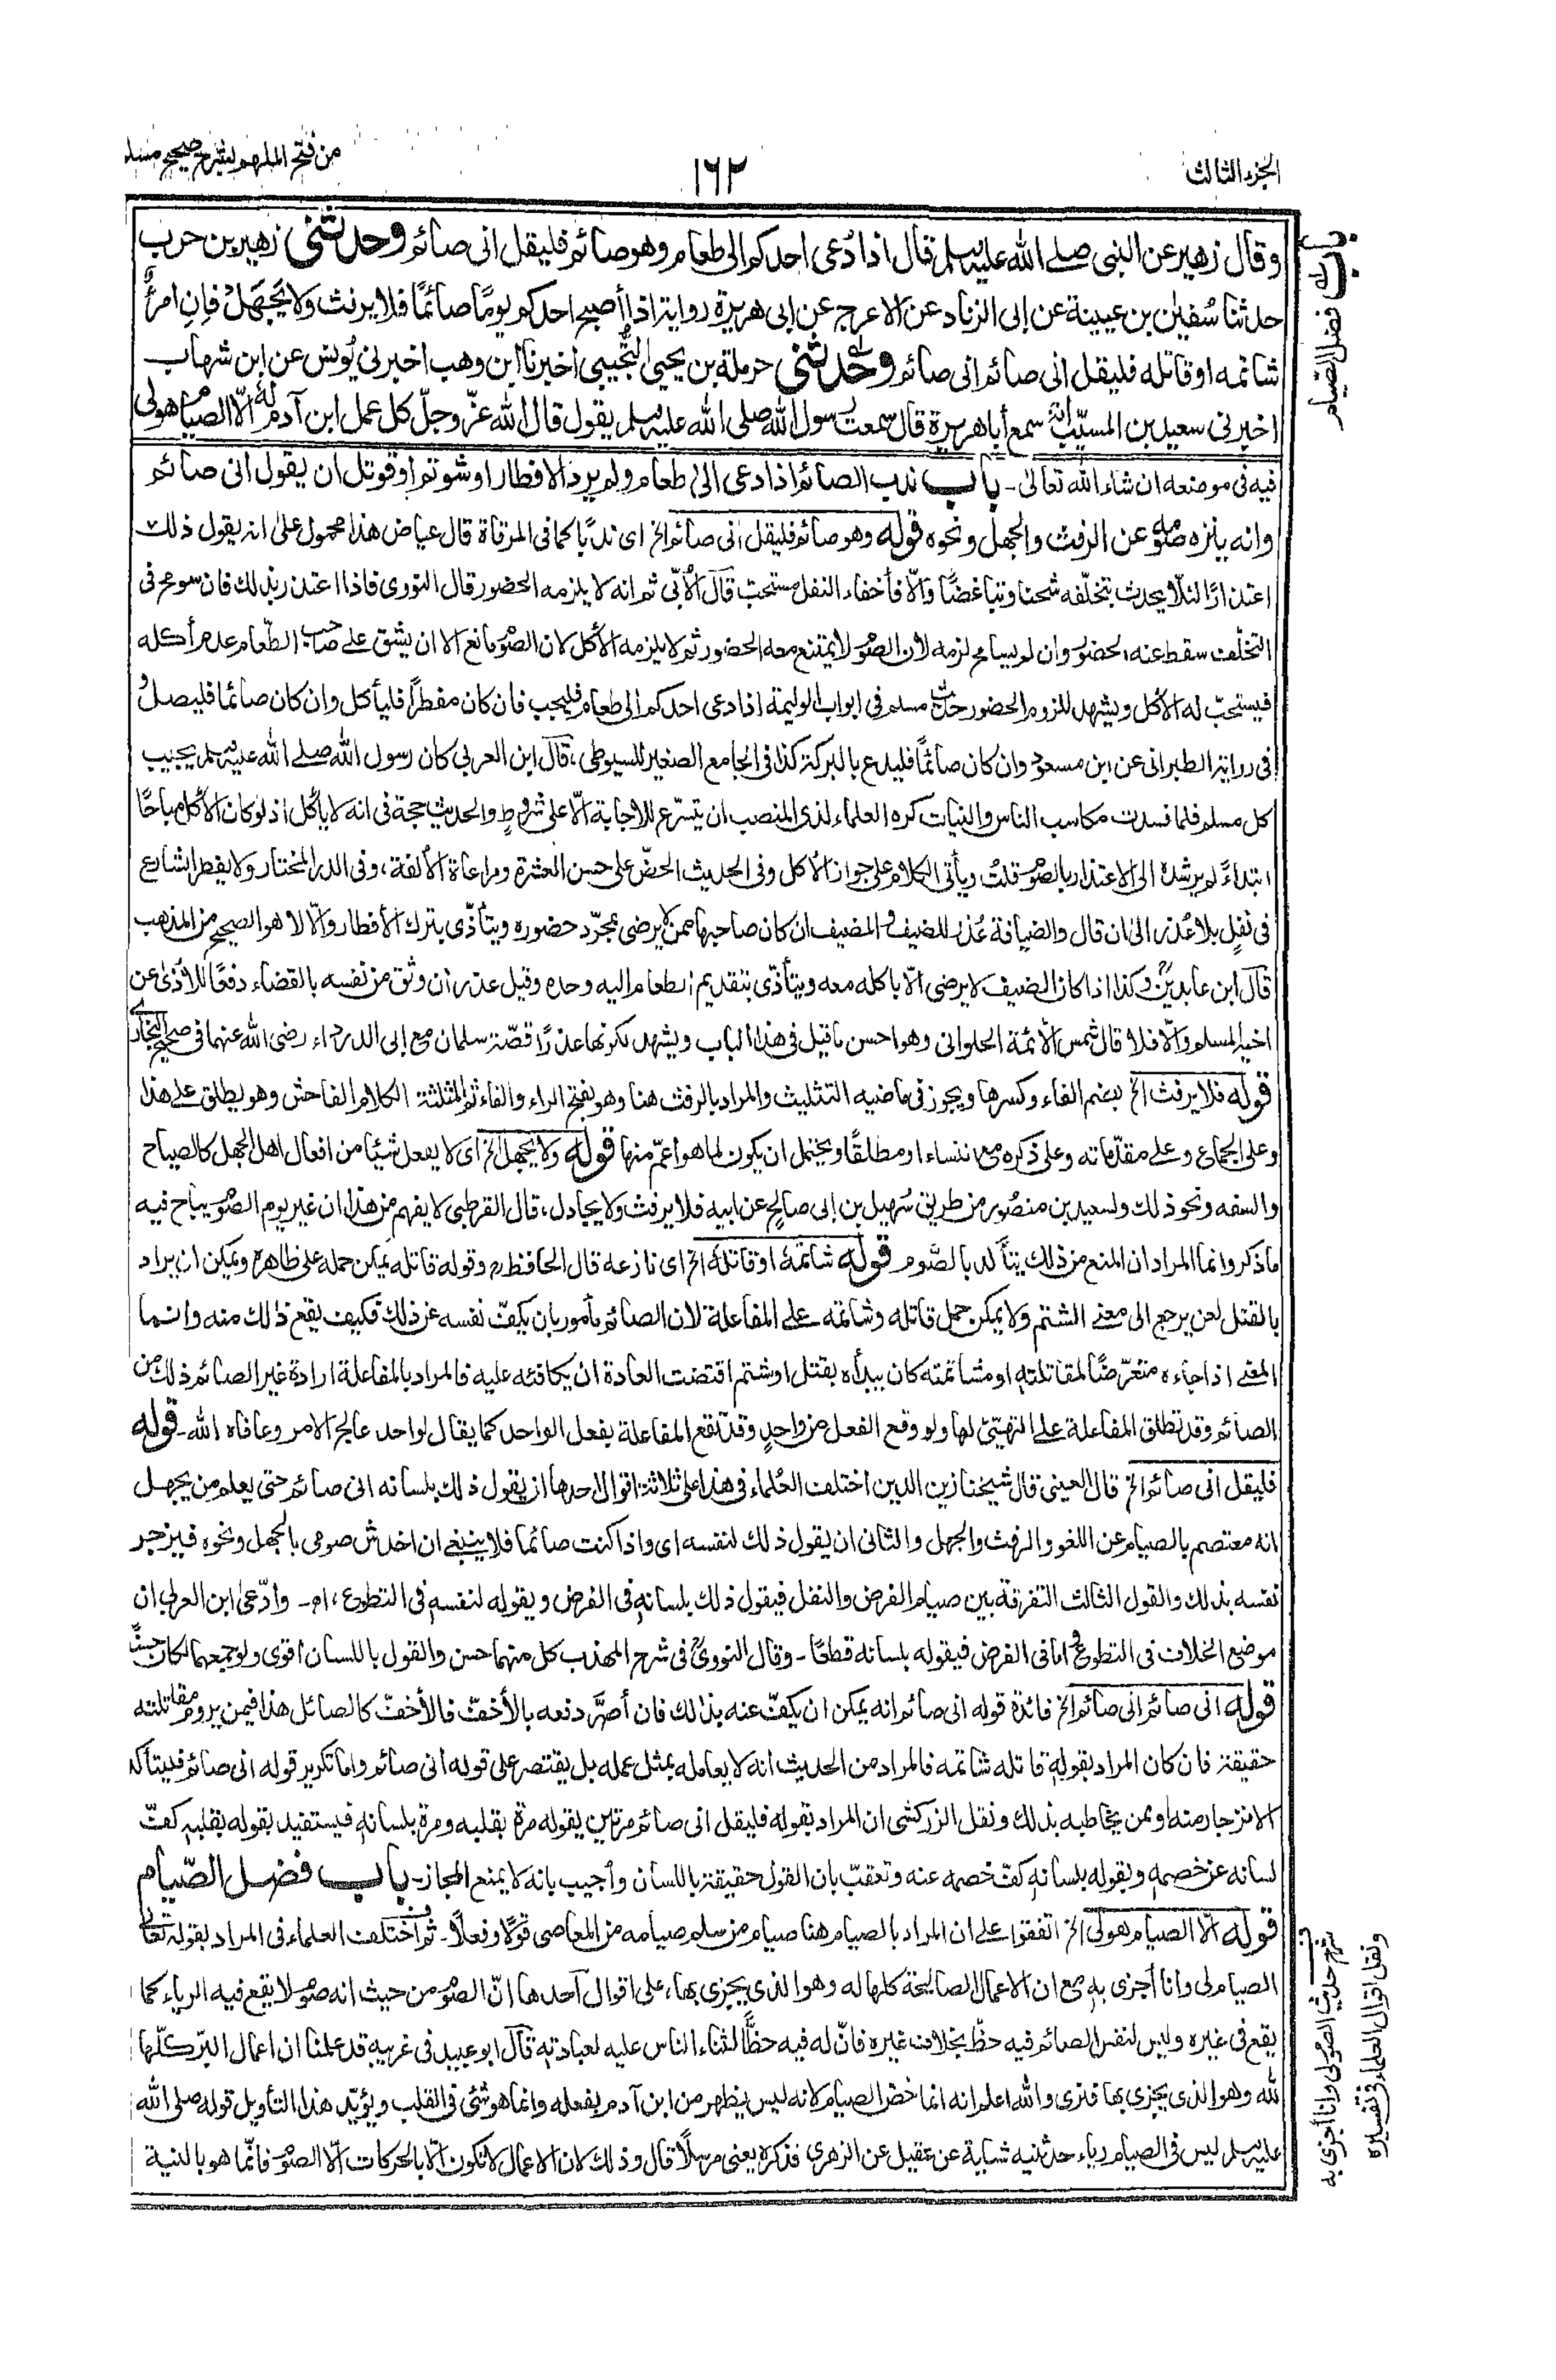 الجزء الثالث
١٦٢
من فتح الملهم بشرح صحيح مسلم
وقال زهير عن النبي صلے الله عليه وسلم قال اذا دُعى احدكم الى طعام وهو صائم فليقل انى صائم وحدثنى زهير بن حرب
حدثنا سُفيٰن بن عيينة عن ابى الزناد عن الاعرج عن ابى هريرة رواية اذا أصبح احدكم يومًا صائمًا فلا يرفث ولا يَجهَلْ فإنِ امرأٌ
شاتمه او قاتله فليقل انى صائم انى صائم وحدثنى حرملة بن يحيى التُّجيبى اخبرنا ابن وهب اخبرنى يُونس عن ابن شهاب
اخبرنى سعيد بن المسيّب انه سمع أبا هريرة قال سمعت رسول الله صلى الله عليه وسلم يقول قال الله عزّ وجلّ كل عمل ابن آدم له الّا الصيام هو لى
باب فضل الصّيام
فيه فى موضعه ان شاء الله تعالىٰ ۔ باب ندب الصائم اذا دعى الىٰ طعام ولم يرد الافطار او شوتم او قوتل ان يقول انى صائم
وانه ينزه صومه عن الرفث والجهل ونحوه قوله وهو صائم فليقل انى صائم الخ اى ندبًا كما فى المرقاة قال عياض هذا محمول علىٰ انه يقول ذلك
اعتذارًا لئلا يحدث بتخلّفه شحنا وتباغضًا والّا فأخفاء النفل مستحبّ قال الأبّى ثم انه لا يلزمه الحضور قال النووى فاذا اعتذر بذلك فان سومح فى
التخلّف سقط عنه الحضور وان لم يسامح لزمه لأن الصوم لا يمتنع معه الحضور ثم لا يلزمه الأكل لان الصوم مانع الا ان يشق على صاحب الطّعام عدم أكله
فيستحبّ له الأكل ويشهد للزوم الحضور حديث مسلم فى ابواب الوليمة اذا دعى احدكم الى طعام فليجب فان كان مفطراً فليأكل وان كان صائما فليصل و
فى رواية الطبرانى عن ابن مسعود وان كان صائمًا فليدع بالبركة كذا فى الجامع الصغير للسيوطى، قال ابن العربي كان رسول الله صلے الله عليه وسلم يجيب
كل مسلم فلما فسدت مكاسب الناس والنيات كره العلماء لذى المنصب ان يتسرّع للاجابة الّا على شروطٍ والحديث حجة فى انه لا يأكل اذ لو كان الأكل مباحًا
ابتداءً لم يرشد الى الاعتذار بالصوم قلتُ ويأتى الكلام على جواز الأكل وفى الحديث الحضّ على حسن العشرة ومراعاة الألفة، وفى الدر المختار ولا يفطر الشارع
فى نفلٍ بلا عُذر الىٰ ان قال والضيافة عُذر للضيف والمضيف ان كان صاحبها ممن لا يرضى بمجرّد حضوره ويتأذّى بترك الأفطار والّا لا هو الصحيح من المذهب
قال ابن عابدينؒ وكذا اذا كان الضيف لا يرضى الّا باكله معه ويتأذّى بتقديم الطعام اليه وحده وقيل عذر ان وثق من نفسه بالقضاء دفعًا للأذىٰ عن
اخيه المسلم والّا فلا قال شمس الأئمة الحلوانى وهو احسن ما قيل فى هذا الباب ويشهد لكونها عذرًا قصّة سلمان مع ابى الدرداء رضى الله عنهما فى صحيح البخارى
قوله فلا يرفث الخ بضم الفاء وكسرها ويجوز فى ماضيه التثليث والمراد بالرفث هنا وهو بفتح الراء والفاء ثم المثلثة الكلام الفاحش وهو يطلق على هذا
وعلى الجماع وعلى مقدّماته وعلى ذكره مع النساء او مطلقًا ويحتمل ان يكون لما هو أعمّ منها قوله ولا يجهل الخ اى لا يفعل شيئا من افعال اهل الجهل كالصياح
والسفه ونحو ذلك ولسعيد بن منصُور من طريق سُهيل بن ابى صالح عن ابيه فلا يرفث ولا يجادل، قال القرطبى لا يفهم من هذا ان غير يوم الصوم يباح فيه
ما ذكر وانما المراد ان المنع من ذلك يتأكد بالصّوم قوله شاتمهٗ او قاتلهٗ الخ اى نازعه قال الحافظ رح وقوله قاتله يمكن حمله على ظاهره ويمكن ان يراد
بالقتل لعن يرجع الى معنے الشتم ولا يمكن حمل قاتله وشاتمه علے المفاعلة لان الصائم مأمور بان يكفّ نفسه عن ذلك فكيف يقع ذلك منه وانما
المعنے اذا جاءه متعرّضًا لمقاتلته او مشاتمته كان يبدأه بقتل او شتم اقتضت العادة ان يكافئه عليه فالمراد بالمفاعلة ارادة غير الصائم ذلك من
الصائم وقد تطلق المفاعلة علے التهيّئ لها ولو وقع الفعل من واحدٍ وقد تقع المفاعلة بفعل الواحد كما يقال لواحد عالج الامر وعافاه الله۔ قوله
فليقل انى صائم الخ قال العينى قال شيخنا زين الدين اختلف العُلماء فى هذا على ثلاثة اقوال احدها ان يقول ذلك بلسانه انى صائم حتى يعلم من يجهل
انه معتصم بالصيام عن اللغو والرفث والجهل والثانى ان يقول ذلك لنفسه اى واذا كنت صائما فلا ينبغے ان اخدش صومى بالجهل ونحوه فيزجر
نفسه بذلك والقول الثالث التفرقة بين صيام الفرض والنفل فيقول ذلك بلسانه فى الفرض ويقوله لنفسه فى التطوع، اھ۔ وادّعى ابن العربي ان
موضع الخلاف فى التطوع واما فى الفرض فيقوله بلسانه قطعًا۔ وقال النووىؒ فى شرح المهذب كل منهما حسن والقول باللسان اقوى ولو جمعهما لكان حسنًا
قوله انى صائم انى صائم الخ فائدة قوله انى صائم انه يمكن ان يكفّ عنه بذلك فان أصرّ دفعه بالأخفّ فالأخفّ كالصائل هذا فيمن يروم مقاتلته
حقيقة فان كان المراد بقوله قاتله شاتمه فالمراد من الحديث انه لا يعامله بمثل عمله بل يقتصر على قوله انى صائم واما تكرير قوله انى صائم فليتأكد
الانزجار منه او ممن يخاطبه بذلك ونقل الزركشى ان المراد بقوله فليقل انى صائم مرتين يقوله مرة بقلبه ومرة بلسانه فيستفيد بقوله بقلبه كفّ
لسانه عن خصمه وبقوله بلسانه كفّ خصمه عنه وتعقبّ بان القول حقيقة باللسان وأجيب بانه لا يمنع المجاز۔ باب فضل الصّيام
قوله الّا الصيام هو لى الخ اتفقوا على ان المراد بالصيام هنا صيام من سلم صيامه من المعاصى قولًا وفعلاً۔ ثم اختلف العلماء فى المراد بقوله تعالى
الصيام لى وانا أجزى به مع ان الاعمال الصالحة كلها له وهو الذى يجزى بها، على اقوال آحدها انّ الصوم من حيث انه صوم لا يقع فيه الرياء كما
يقع فى غيره وليس لنفس الصائم فيه حظّ بخلاف غيره فانّ له فيه حظًّا لثناء الناس عليه لعبادته قال ابو عبيد فى غريبه قد علمنا ان اعمال البرّ كلّها
لله وهو الذى يجزى بها فنرى والله اعلم انه انما خصّ الصيام لانه ليس يظهر من ابن آدم بفعله وانما هو شئى فى القلب ويؤيّد هذا التأويل قوله صلى الله
عليه وسلم ليس فى الصيام رياء حدثنيه شبابة عن عقيل عن الزهرى فذكره يعنى مرسلًا قال وذلك لان الاعمال لا تكون الّا بالحركات الّا الصوم فانّما هو بالنية
شرح حديث الصوم لى وانا أجزى به
ونقل اقوال العلماء فى تفسيره